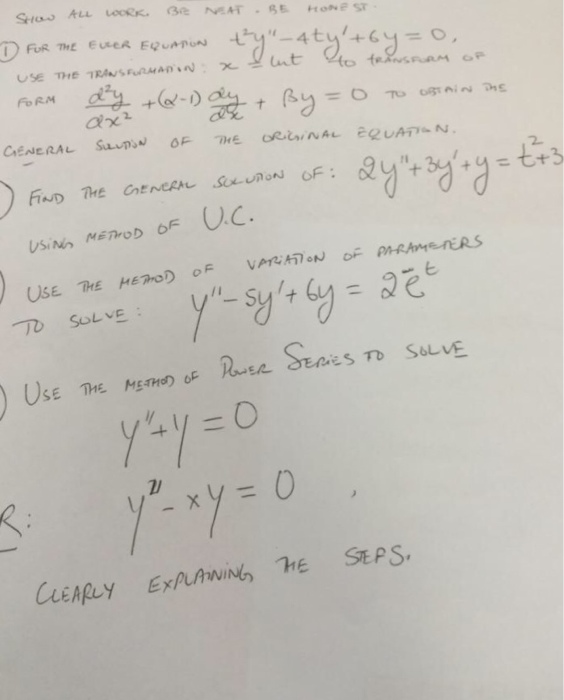 SHOW ALL WORK. BE NEAT. BE HONEST.
① FOR THE EULER EQUATION t²y″-4ty′+6y=0,
USE THE TRANSFORMATION: x = lnt to TRANSFORM OF
FORM d²y/dx² + (α-1) dy/dx + βy = 0 TO OBTAIN THE
GENERAL SOLUTION OF THE ORIGINAL EQUATION.
) FIND THE GENERAL SOLUTION OF: 2y″+3y′+y=t²+3
USING METHOD OF U.C.
) USE THE METHOD OF VARIATION OF PARAMETERS
TO SOLVE: y″-5y′+6y = 2e⁻ᵗ
) USE THE METHOD OF POWER SERIES TO SOLVE
y″+y=0
R: y″-xy=0,
CLEARLY EXPLAINING THE STEPS.